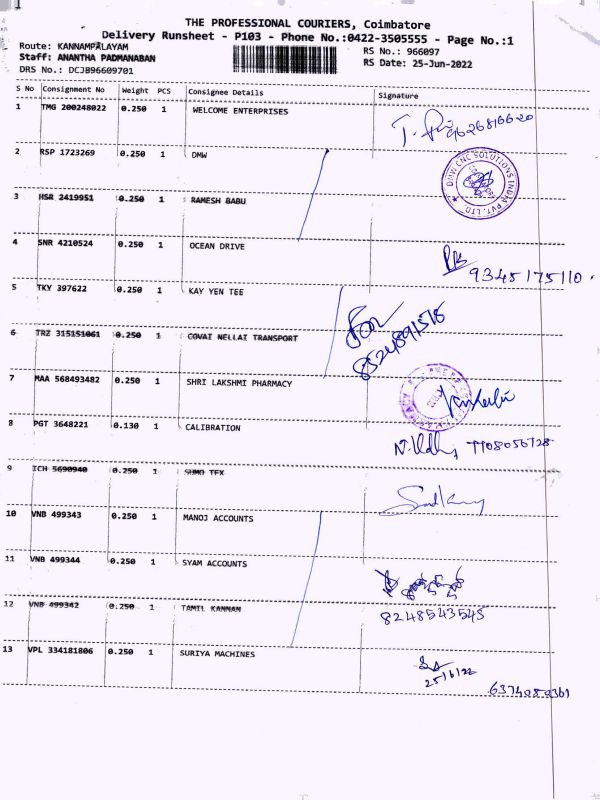 THE PROFESSIONAL COURIERS, Coimbatore
Delivery Runsheet - P103 - Phone No.:0422-3505555 - Page No.:1
Route: KANNAMPALAYAM
RS No.: 966097
Staff: ANANTHA PADMANABAN
RS Date: 25-Jun-2022
DRS No.: DCJB96609701
S No Consignment No Weight PCS Consignee Details Signature
1 TMG 200248022 0.250 1 WELCOME ENTERPRISES
2 RSP 1723269 0.250 1 DMW
DMW CNC SOLUTIONS INDIA PVT. LTD.
3 HSR 2419951 0.250 1 RAMESH BABU
4 SNR 4210524 0.250 1 OCEAN DRIVE
9345175110
5 TKY 397622 0.250 1 KAY YEN TEE
6 TRZ 315151061 0.250 1 COVAI NELLAI TRANSPORT
8524891518
7 MAA 568493482 0.250 1 SHRI LAKSHMI PHARMACY
8 PGT 3648221 0.130 1 CALIBRATION
7708056728
9 ICH 5690940 0.250 1 SUMO TEX
10 VNB 499343 0.250 1 MANOJ ACCOUNTS
11 VNB 499344 0.250 1 SYAM ACCOUNTS
12 VNB 499342 0.250 1 TAMIL KANNAN
8248543545
13 VPL 334181806 0.250 1 SURIYA MACHINES
25/6/22